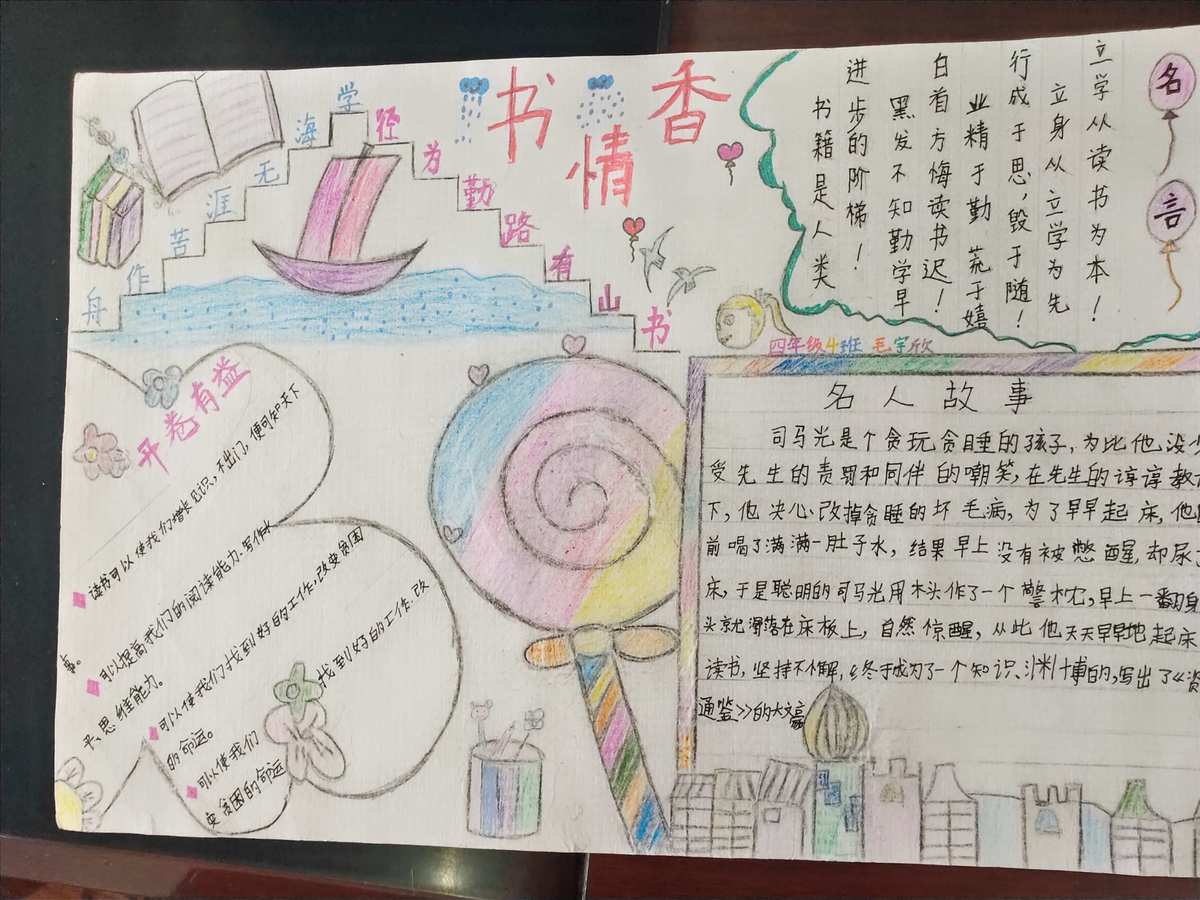 书情香
书山有路勤为径
学海无涯苦作舟
名言
书籍是人类
进步的阶梯！
黑发不知勤学早
白首方悔读书迟！
业精于勤 荒于嬉
行成于思，毁于随！
立身从立学为先
立学从读书为本！
四年级4班 毛宇欣
开卷有益
读书可以使我们增长见识，不出门，便可知天下
事。
可以提高我们的阅读能力、写作水
平、思维能力。
可以使我们找到好的工作，改变贫困
的命运。
可以使我们 找到好的工作，改
变贫困的命运
名人故事
司马光是个贪玩贪睡的孩子，为此他没少
受先生的责罚和同伴的嘲笑，在先生的谆谆教
下，他决心改掉贪睡的坏毛病，为了早早起床，他
前喝了满满一肚子水，结果早上没有被憋醒，却尿
床，于是聪明的司马光用木头作了一个警枕，早上一翻身
头就滑落在床板上，自然惊醒，从此他天天早早地起床
读书，坚持不懈，终于成为了一个知识渊博的，写出了《资
通鉴》的大文豪